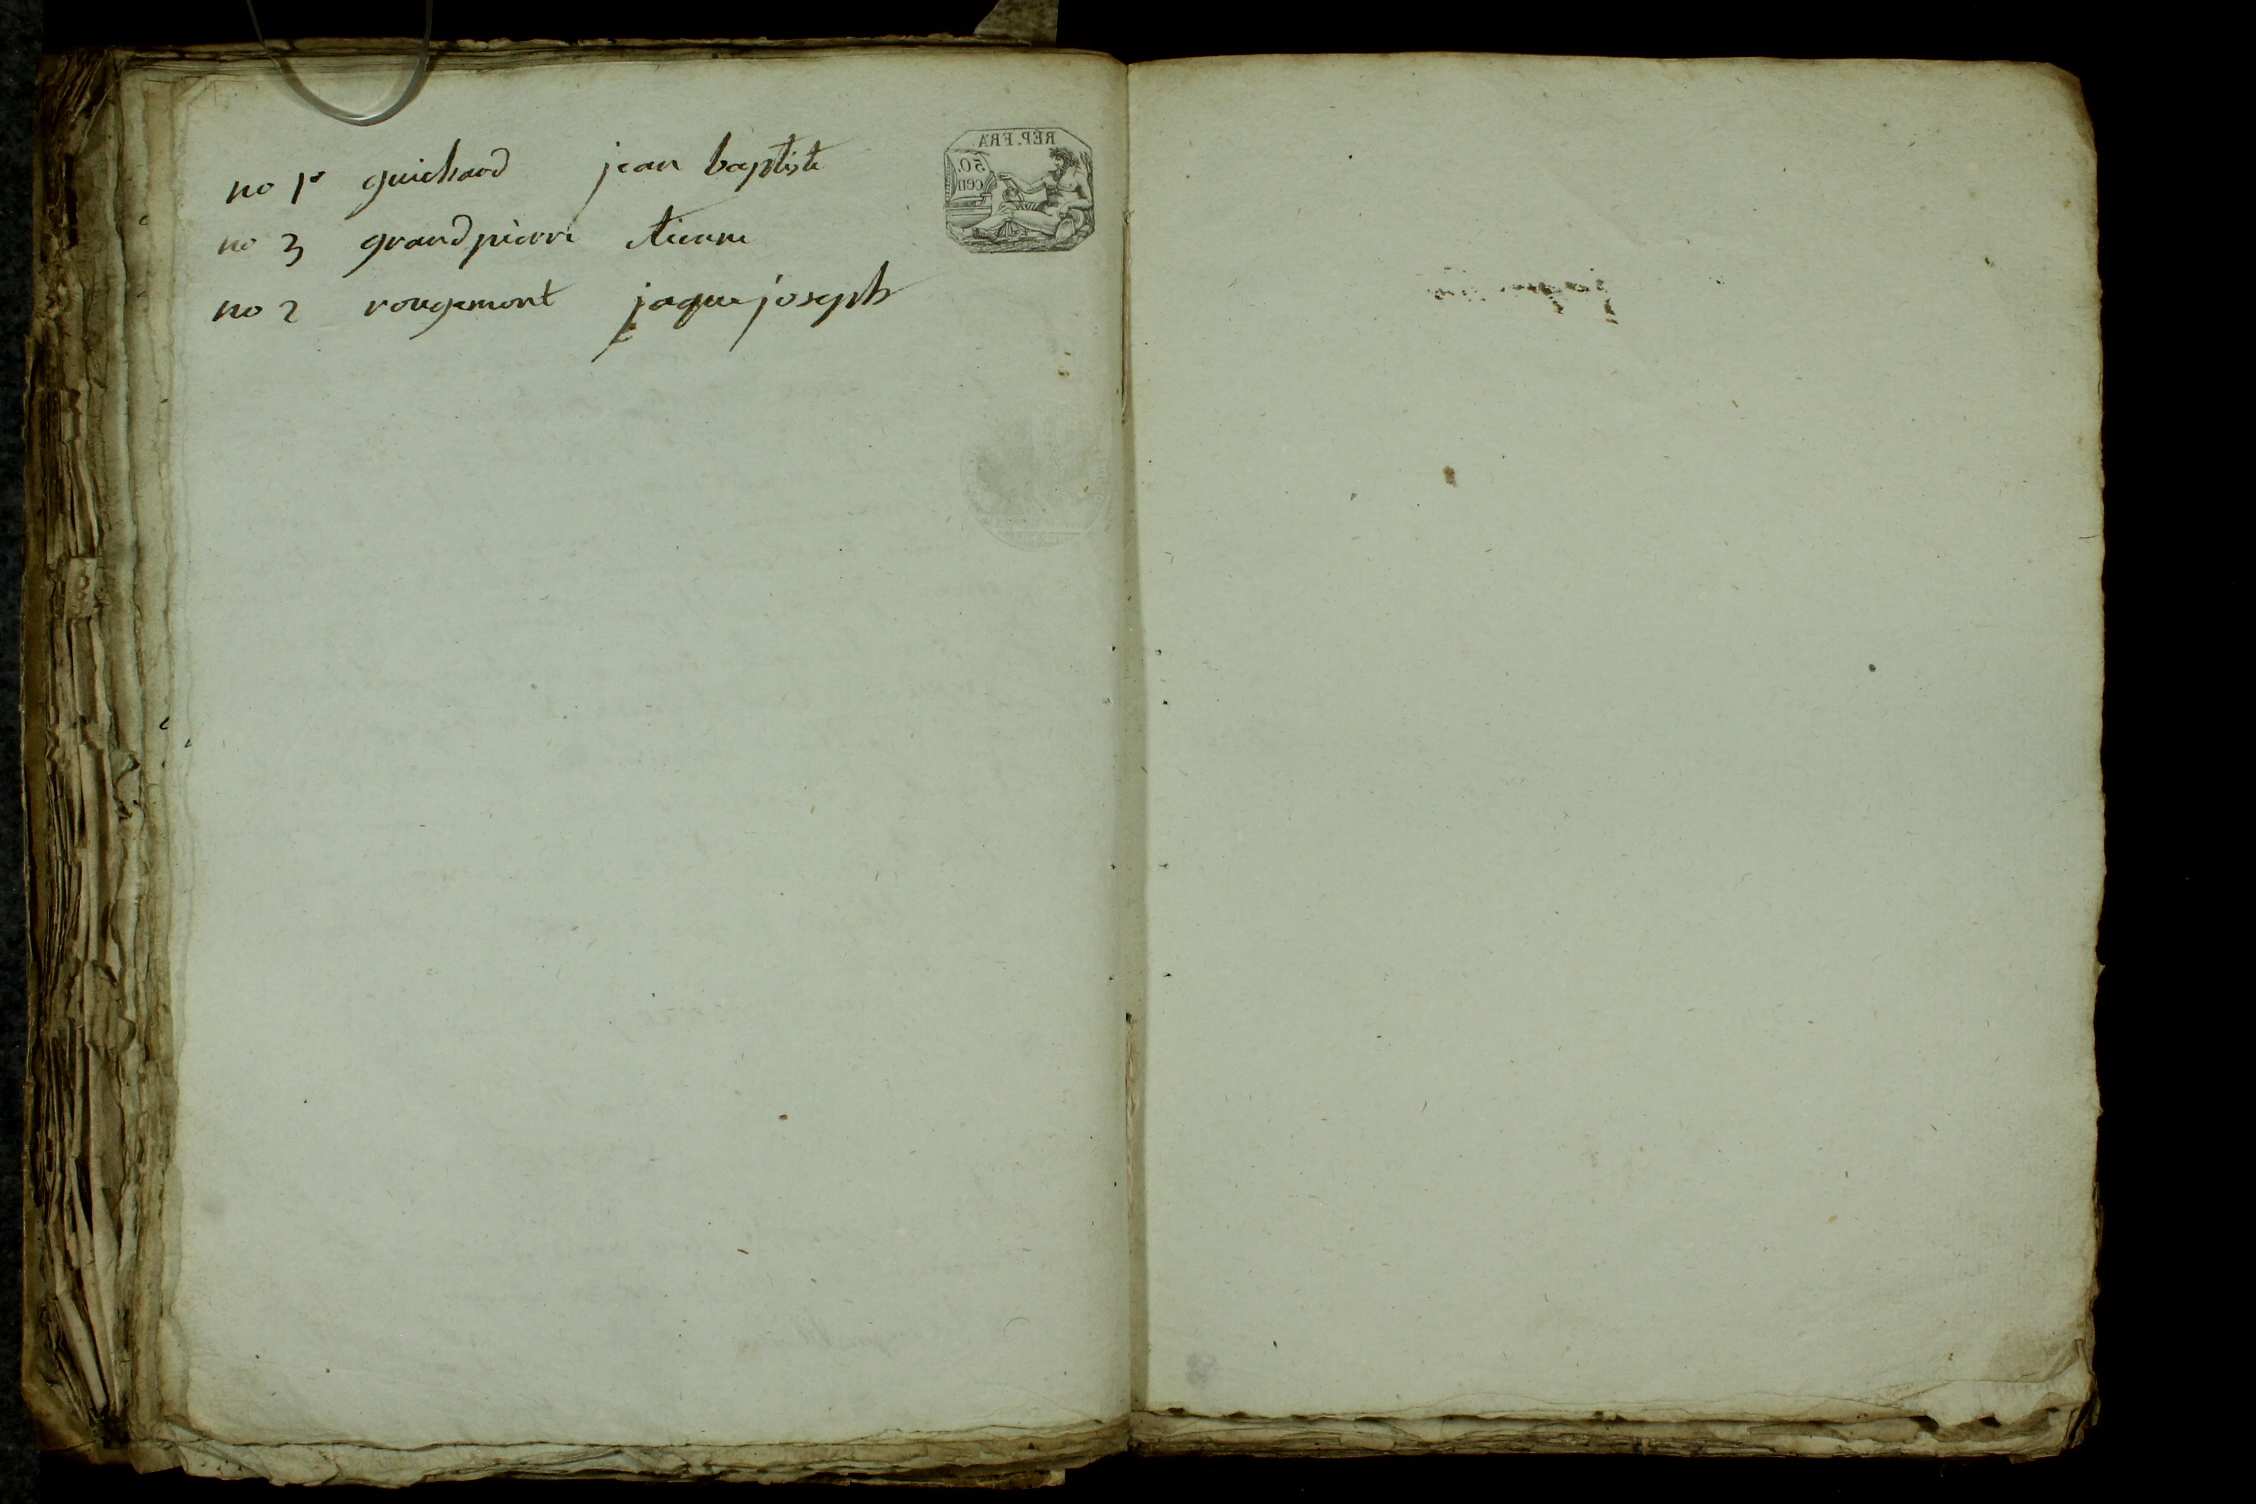 no 1er guichard jean baptiste
no 3 grandpierre etienne
no 2 rougemont jaque joseph
REP.FRA.
50.
cen